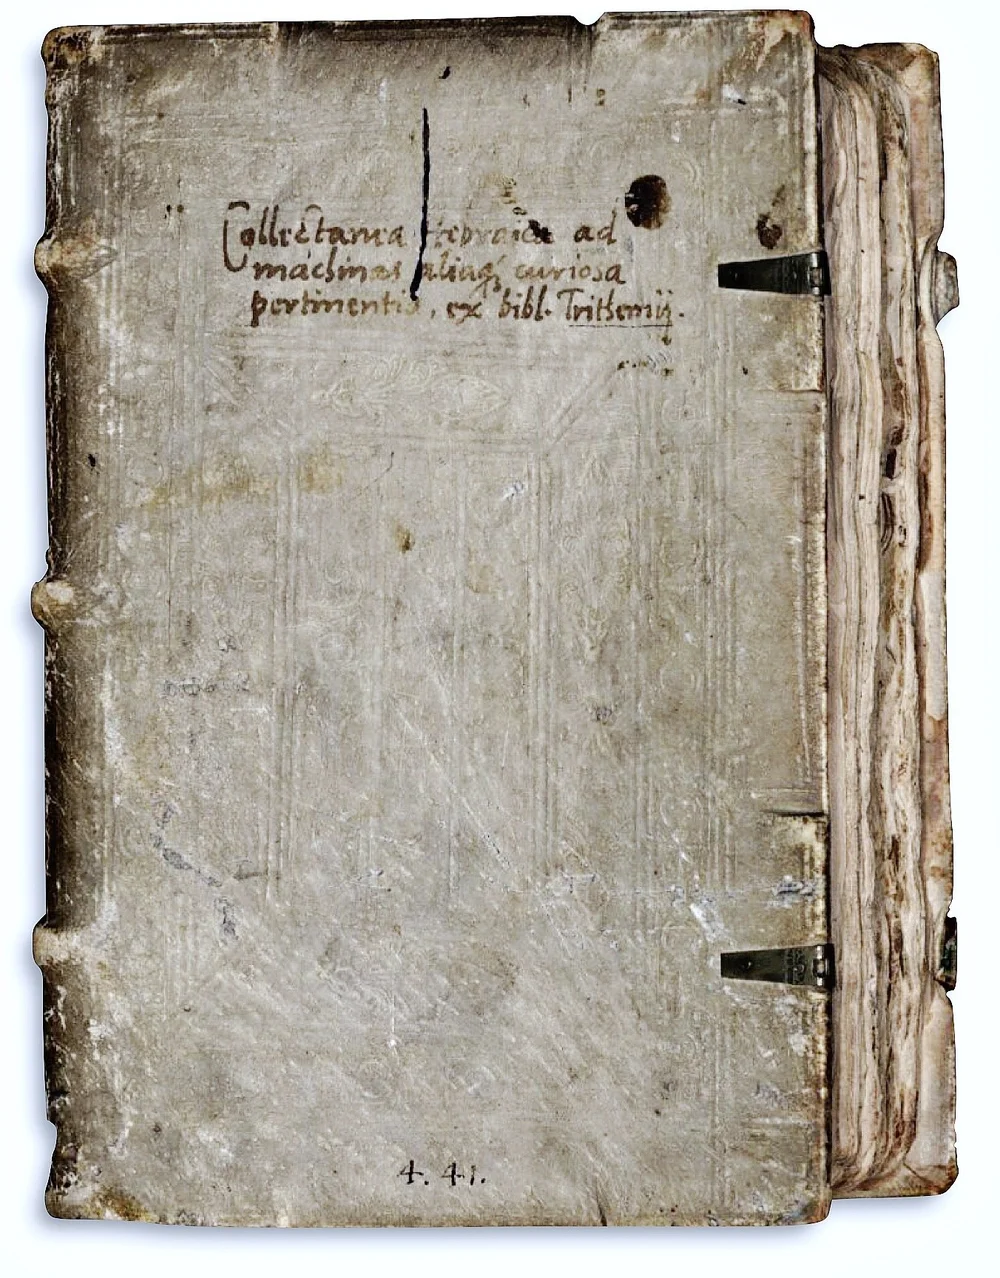 Collectanea Hebraica ad
machinas aliaq́ curiosa
pertinentia, ex bibl. Trithemij.
4. 41.